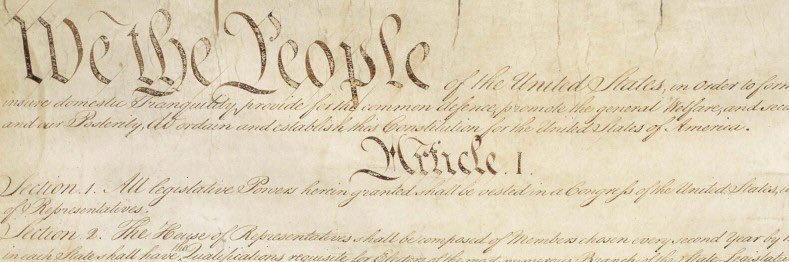 We the People of the United States, in Order to form
insure domestic Tranquility, provide for the common defence, promote the general Welfare, and secu
and our Posterity, do ordain and establish this Constitution for the United States of America.
Article. I.
Section. 1. All legislative Powers herein granted shall be vested in a Congress of the United States,
of Representatives.
Section. 2. The House of Representatives shall be composed of Members chosen every second Year by
in each State shall have the Qualifications requisite for Electors of the most numerous Branch of the State Legislature